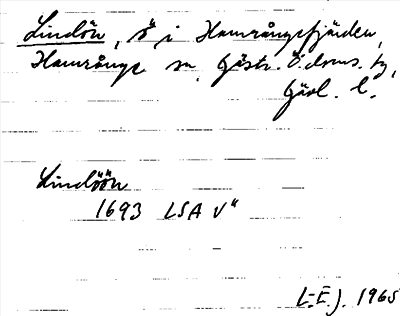 Lindön, ö i Hamrångefjärden,
Hamrånge sn, Gästr. Ö. doms. tg,
Gävl. l.
Lindöön
1693 LSA V"
L-E.J. 1965